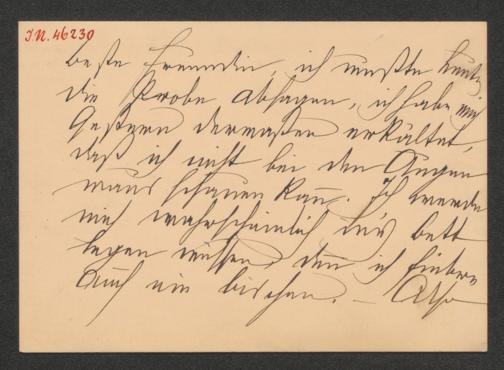 J.N. 46230
beste Freundin, ich mußte heute
die Probe absagen, ich habe mich
Gestern dermaßen erkältet,
daß ich nicht bei den Augen
naus schauen kann. Ich werde
mich wahrscheinlich in's bett
legen müssen, denn ich fiebere
Auch ein bischen. – Also